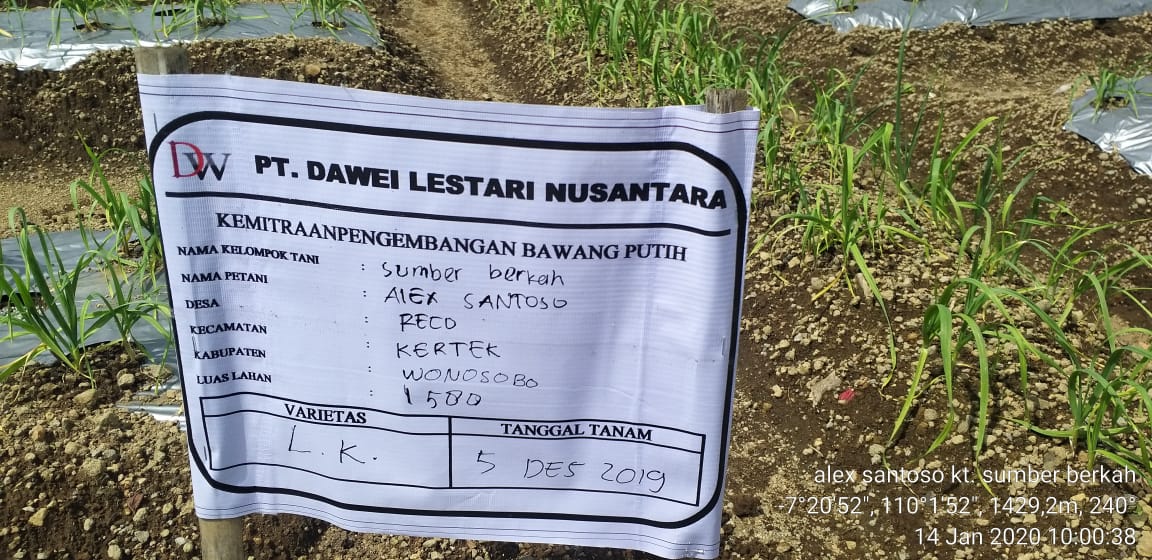 DW PT. DAWEI LESTARI NUSANTARA
KEMITRAANPENGEMBANGAN BAWANG PUTIH
NAMA KELOMPOK TANI : Sumber berkah
NAMA PETANI : AlEX SANTOSO
DESA : RECO
KECAMATAN : KERTEK
KABUPATEN : WONOSOBO
LUAS LAHAN : 1580
VARIETAS TANGGAL TANAM
L.K. 5 DES 2019
alex santoso kt. sumber berkah
-7°20'52", 110°1'52", 1429,2m, 240°
14 Jan 2020 10:00:38